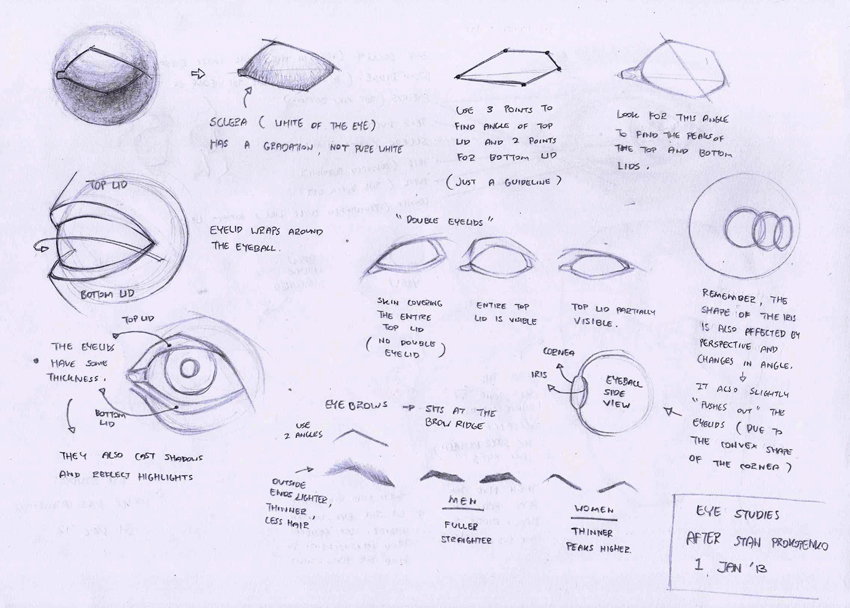 SCLERA ( WHITE OF THE EYE )
HAS A GRADATION, NOT PURE WHITE
USE 3 POINTS TO
FIND ANGLE OF TOP
LID AND 2 POINTS
FOR BOTTOM LID
( JUST A GUIDELINE )
LOOK FOR THIS ANGLE
TO FIND THE PEAKS OF
THE TOP AND BOTTOM
LIDS .
TOP LID
BOTTOM LID
EYELID WRAPS AROUND
THE EYEBALL .
"DOUBLE EYELIDS"
SKIN COVERING
THE ENTIRE
TOP LID
( NO DOUBLE
EYELID )
ENTIRE TOP
LID IS VISIBLE
TOP LID PARTIALLY
VISIBLE .
REMEMBER, THE
SHAPE OF THE IRIS
IS ALSO AFFECTED BY
PERSPECTIVE AND
CHANGES IN ANGLE.
IT ALSO SLIGHTLY
"PUSHES OUT" THE
EYELIDS ( DUE TO
THE CONVEX SHAPE
OF THE CORNEA )
TOP LID
THE EYELIDS
HAVE SOME
THICKNESS .
BOTTOM
LID
THEY ALSO CAST SHADOWS
AND REFLECT HIGHLIGHTS
CORNEA
IRIS
EYEBALL
SIDE
VIEW
EYEBROWS
SITS AT THE
BROW RIDGE
USE
2 ANGLES
OUTSIDE
ENDS LIGHTER,
THINNER,
LESS HAIR.
MEN
FULLER
STRAIGHTER
WOMEN
THINNER
PEAKS HIGHER.
EYE STUDIES
AFTER STAN PROKOPENKO
1 JAN '13